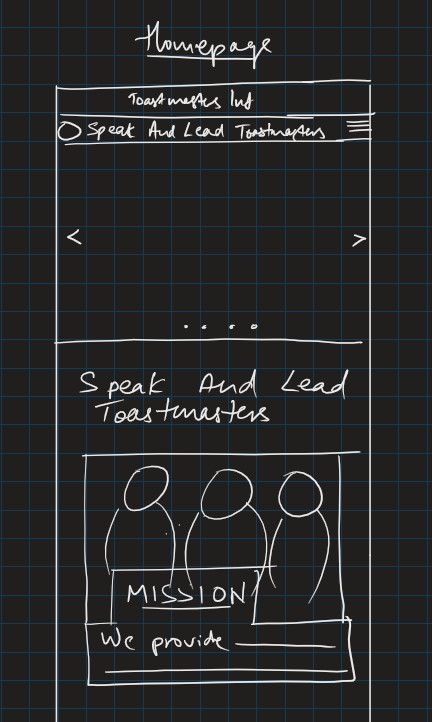 Homepage
Toastmasters Int
Speak And Lead Toastmasters
< >
Speak And Lead
Toastmasters
MISSION
We provide